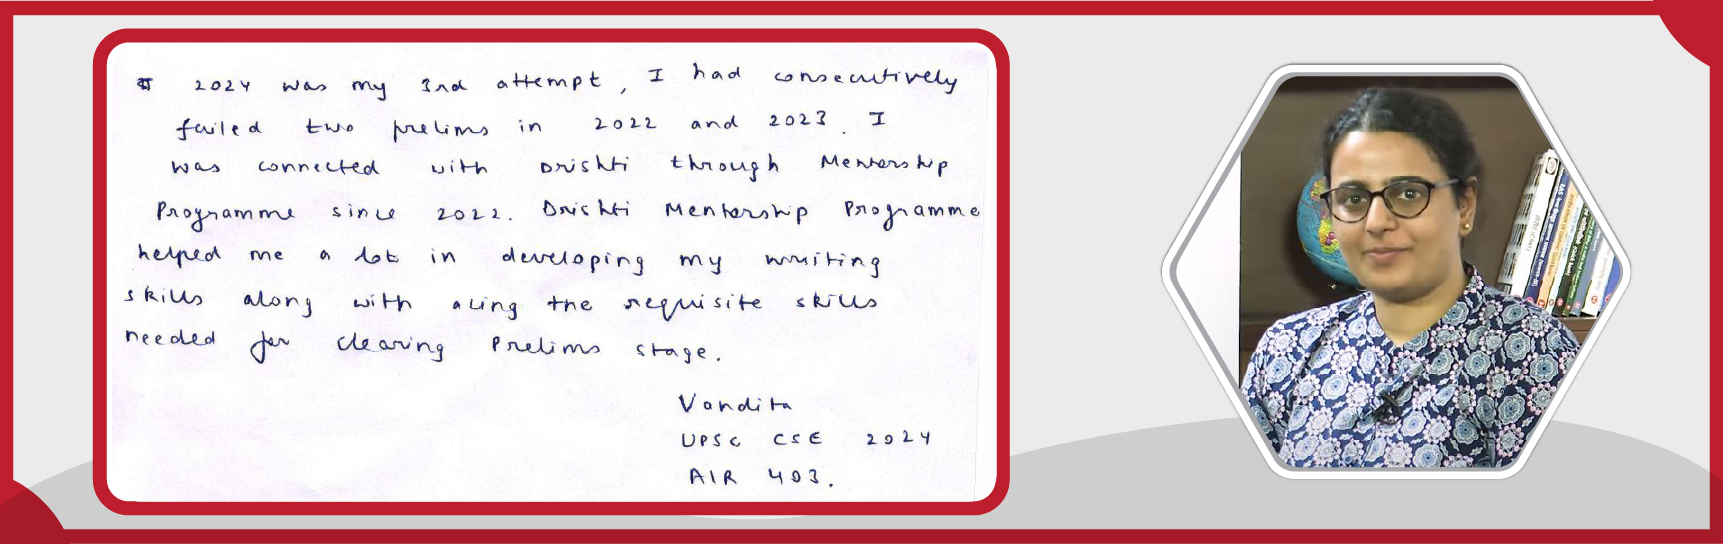 2024 was my 3rd attempt, I had consecutively
failed two prelims in 2022 and 2023. I
was connected with Drishti through Mentorship
Programme since 2022. Drishti Mentorship Programme
helped me a lot in developing my writing
skills along with along the requisite skills
needed for clearing Prelims stage.
Vandita
UPSC CSE 2024
AIR 403.